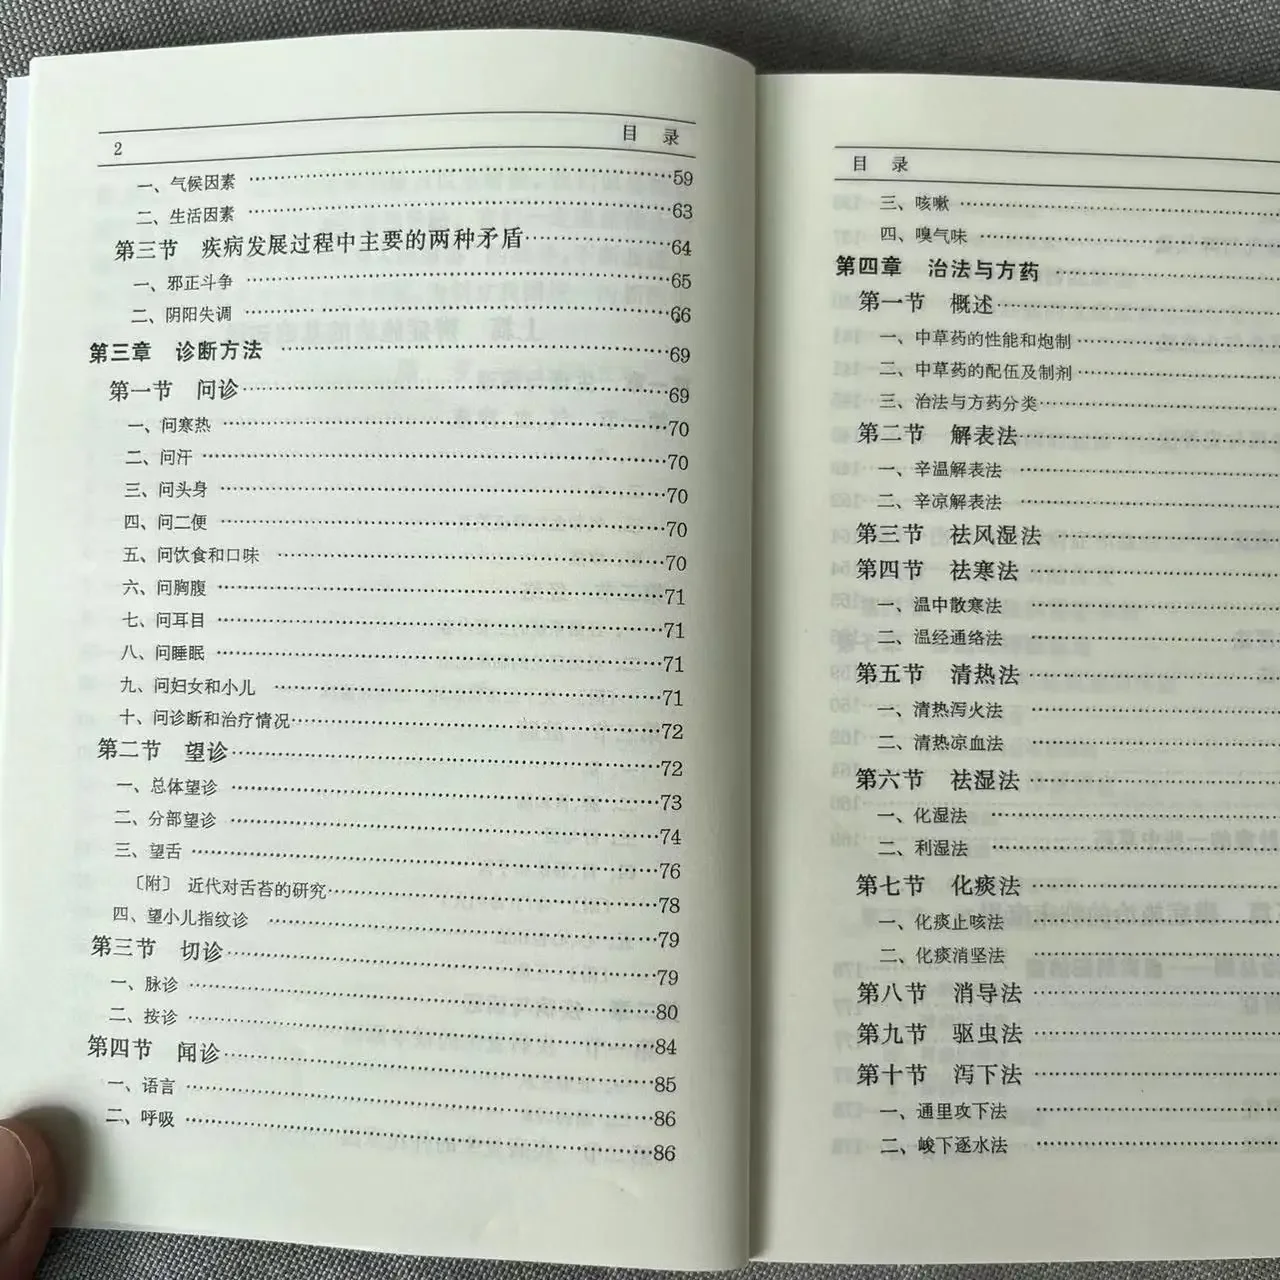 2 目 录
一、气候因素 ……59
二、生活因素 ……63
第三节 疾病发展过程中主要的两种矛盾……64
一、邪正斗争 ……65
二、阴阳失调 ……66
第三章 诊断方法 ……69
第一节 问诊……69
一、问寒热 ……70
二、问汗 ……70
三、问头身 ……70
四、问二便 ……70
五、问饮食和口味 ……70
六、问胸腹 ……71
七、问耳目 ……71
八、问睡眠 ……71
九、问妇女和小儿 ……71
十、问诊断和治疗情况……72
第二节 望诊……72
一、总体望诊 ……73
二、分部望诊 ……74
三、望舌 ……76
〔附〕 近代对舌苔的研究……78
四、望小儿指纹诊 ……79
第三节 切诊……79
一、脉诊 ……80
二、按诊 ……84
第四节 闻诊……85
一、语言 ……86
二、呼吸 ……86
目 录
三、咳嗽 ……
四、嗅气味 ……
第四章 治法与方药 ……
第一节 概述……
一、中草药的性能和炮制 ……
二、中草药的配伍及制剂 ……
三、治法与方药分类……
第二节 解表法……
一、辛温解表法 ……
二、辛凉解表法 ……
第三节 祛风湿法……
第四节 祛寒法……
一、温中散寒法 ……
二、温经通络法 ……
第五节 清热法……
一、清热泻火法 ……
二、清热凉血法 ……
第六节 祛湿法……
一、化湿法 ……
二、利湿法 ……
第七节 化痰法……
一、化痰止咳法 ……
二、化痰消坚法 ……
第八节 消导法……
第九节 驱虫法……
第十节 泻下法……
一、通里攻下法 ……
二、峻下逐水法 ……